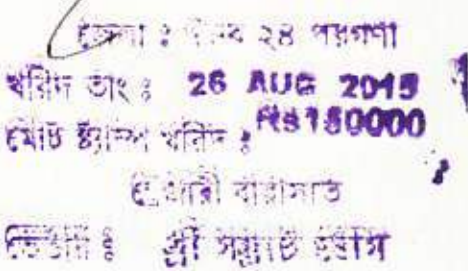 জেলা : উত্তর ২৪ পরগণা
খরিদ তাং : 26 AUG 2015
মোট ষ্ট্যাম্প খরিদ : Rs150000
ট্রেজারী বারাসাত
ভেন্ডার : শ্রী সম্রাট বোস